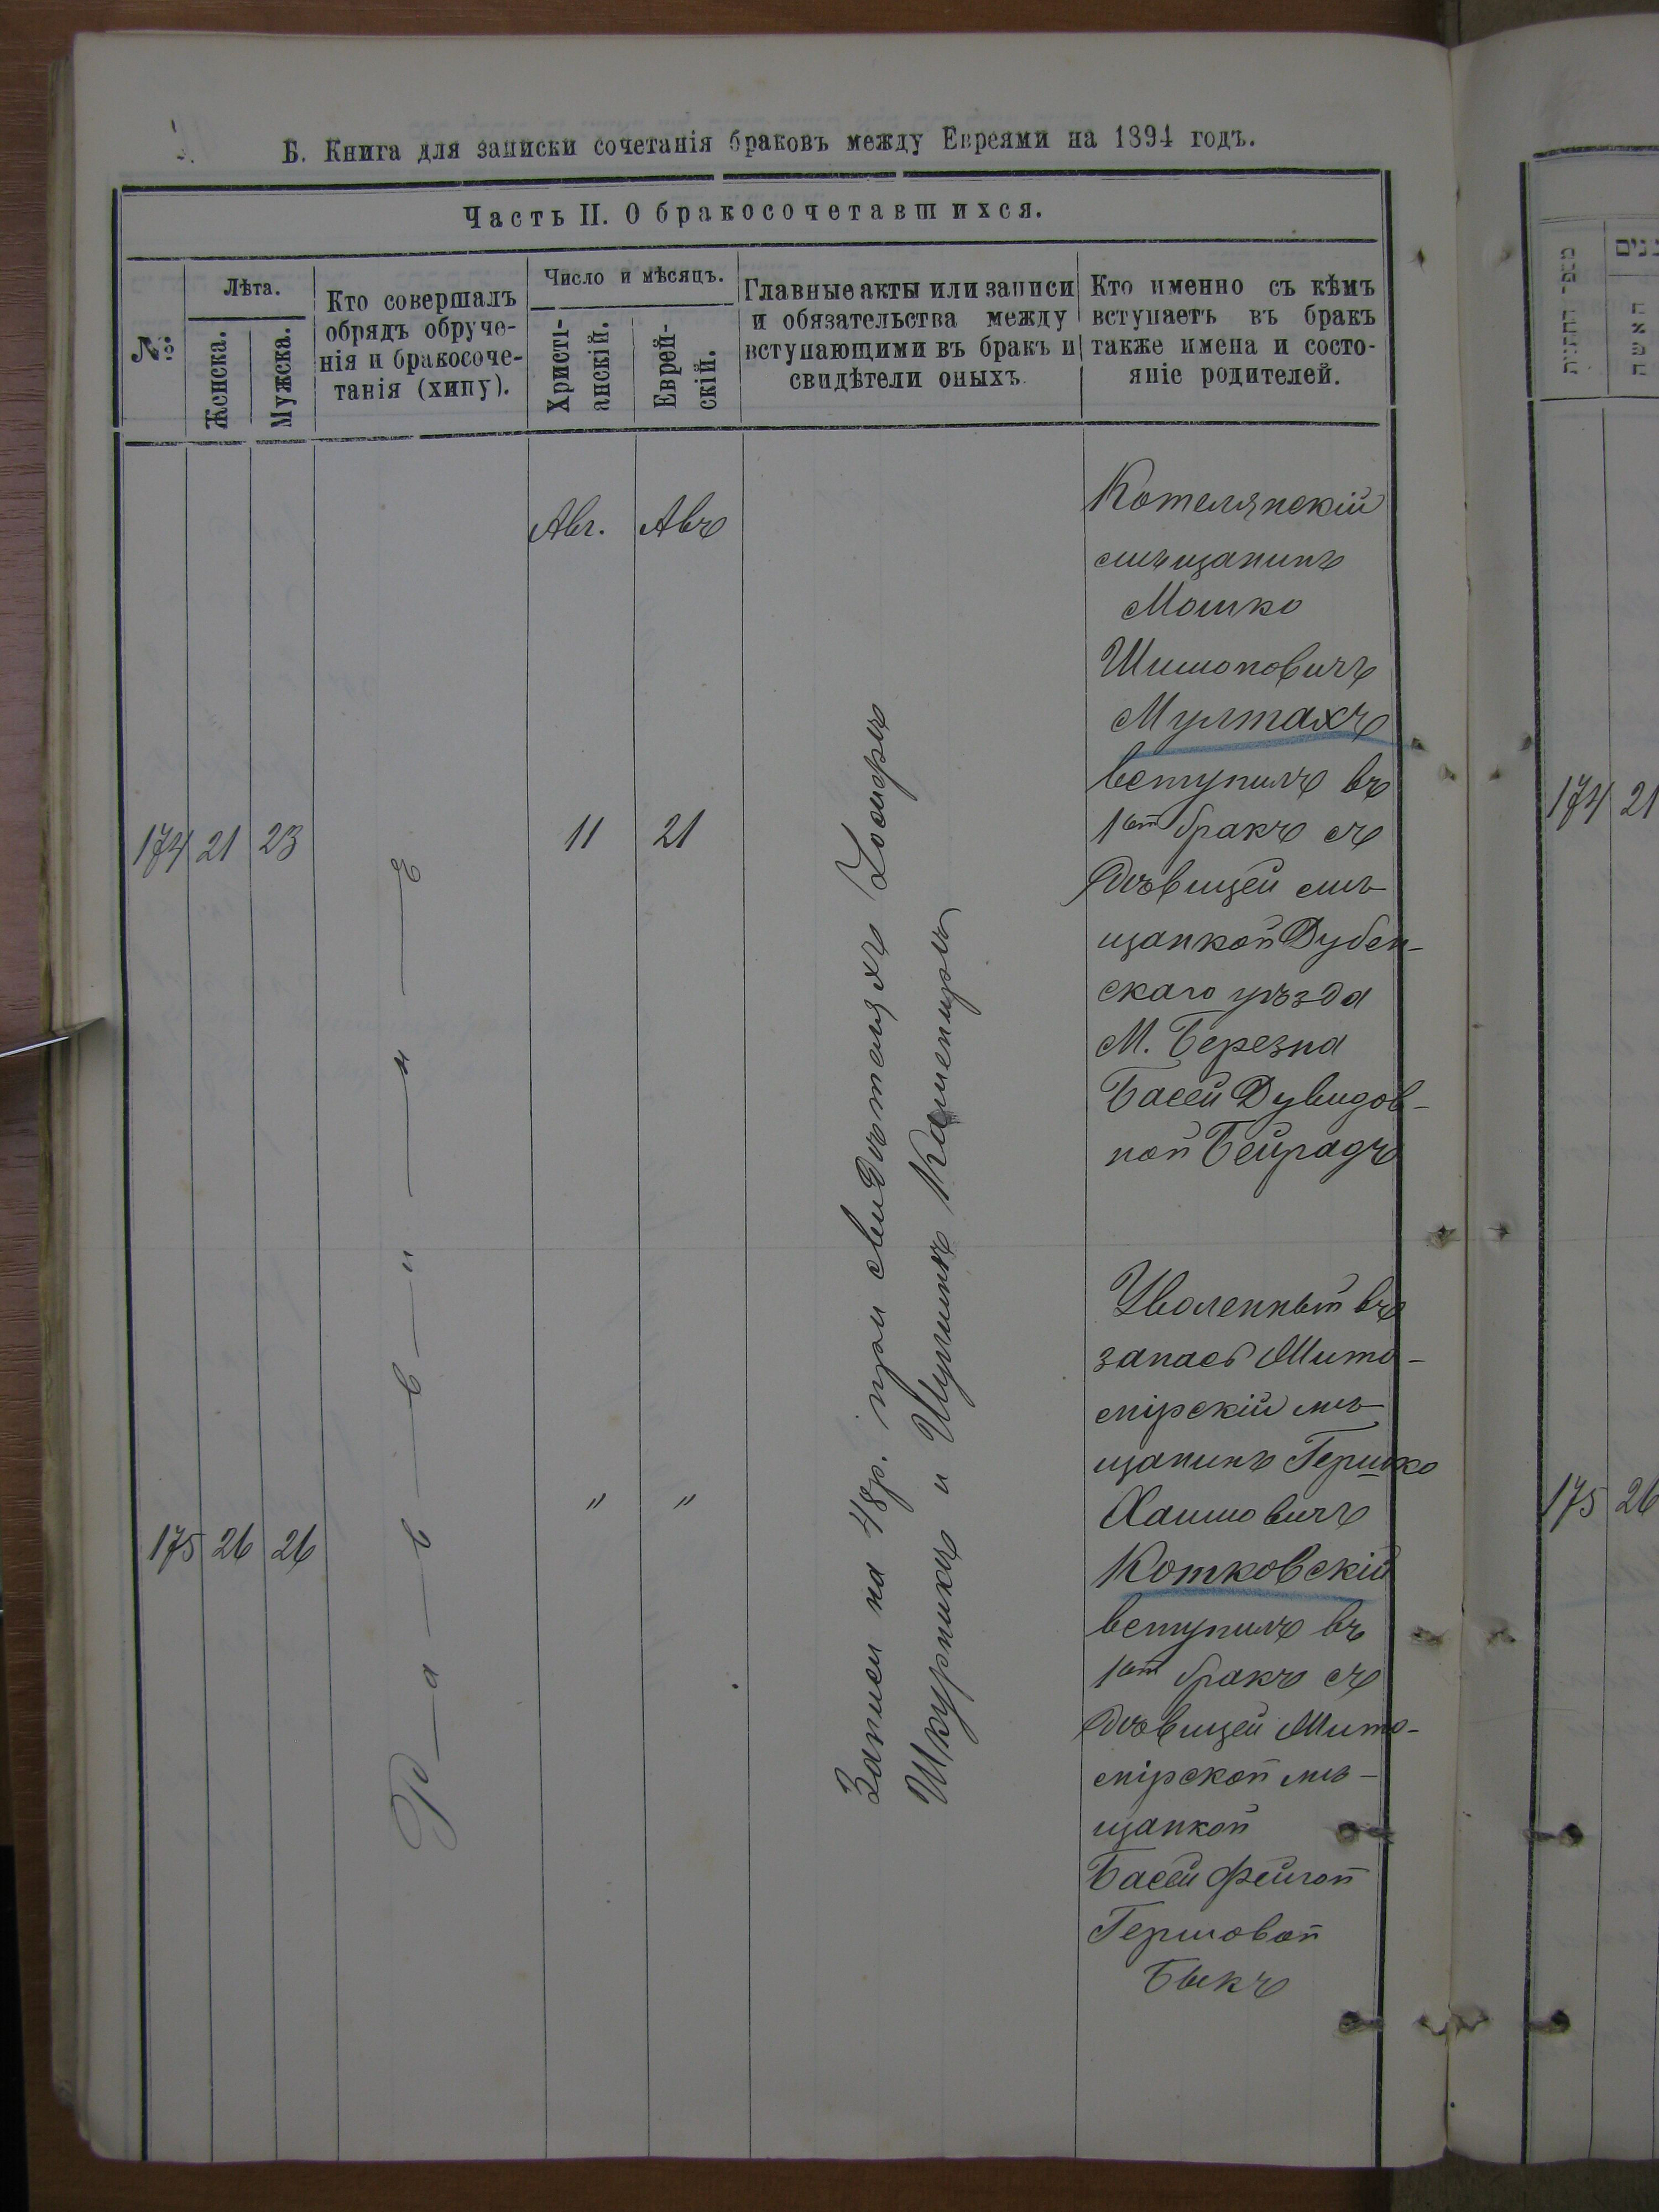 Б. Книга для записки сочетанія браковъ между Евреями на 1894 годъ.
Часть II. О бракосочетавшихся.
№
Лѣта.
Женска.
Мужска.
Кто совершалъ
обрядъ обруче-
нія и бракосоче-
танія (хипу).
Число и мѣсяцъ.
Христі-
анскій.
Еврей-
скій.
Главные акты или записи
и обязательства между
вступающими въ бракъ и
свидѣтели оныхъ.
Кто именно съ кѣмъ
вступаетъ въ бракъ
также имена и состо-
яніе родителей.
Авг.
Авъ
174 21 23
11 21
Котелянскій
мѣщанинъ
Мошко
Шимоновичъ
Мултахъ
вступилъ въ
1ый бракъ съ
дѣвицей мѣ-
щанкой Дубен-
скаго уѣзда
М. Березна
Басей Дувидов-
ной Бейрадъ
Раввинъ
Записи на 48р. при свидѣтеляхъ
Шкурникъ и Шулникъ
175 26 26
" "
Уволенный въ
запасъ Жито-
мірскій мѣ-
щанинъ Гершко
Хаимовичъ
Котковскій
вступилъ въ
1ый бракъ съ
дѣвицей Жито-
мірской мѣ-
щанкой
Басей Фейгой
Гершовой
Быкъ
174 21
175 26